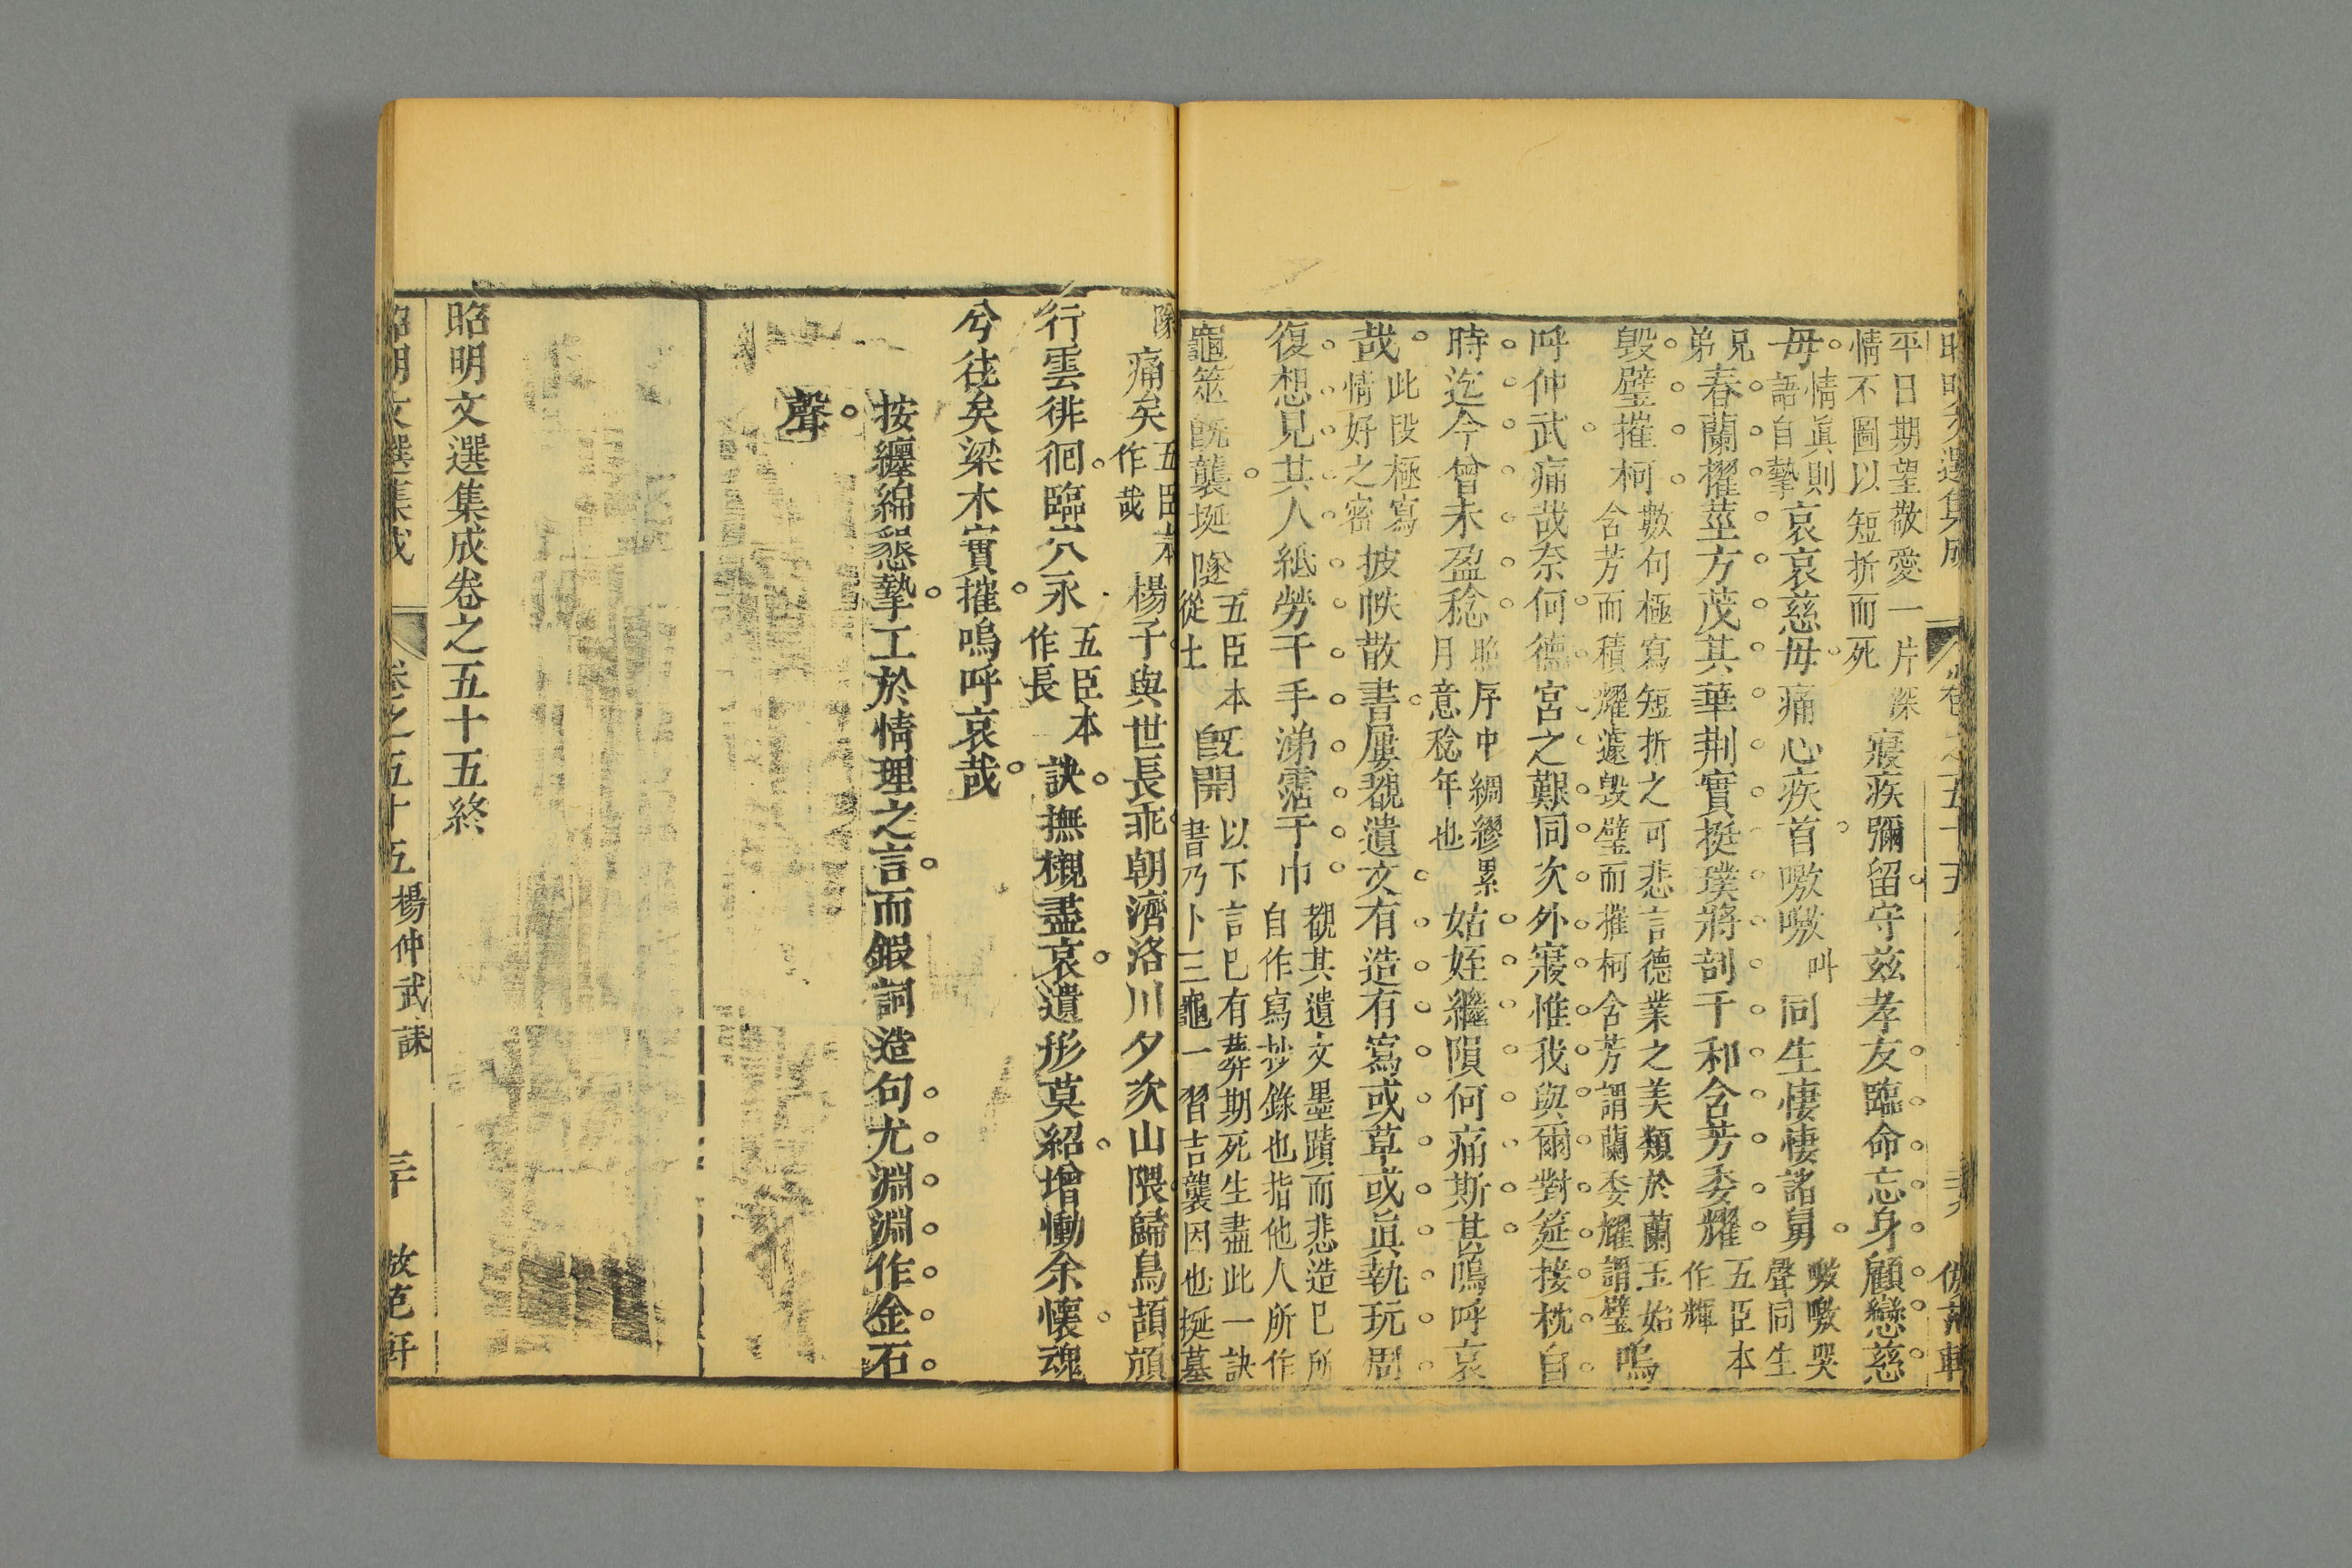 昭明文選集成 卷之五十五 倣范軒
平日期望敬愛一片深
情不圖以短折而死
寢疾彌留守茲孝友臨命忘身顧戀慈
母
情眞則
語自摯
哀哀慈母痛心疾首嗷嗷
叫
同生悽悽諸舅
嗷嗷哭
聲同生
兄
弟
春蘭擢莖方茂其華荆寶挺璞將剖于和含芳委耀
五臣本
作輝
毀璧摧柯
數句極寫短折之可悲言德業之美類於蘭玉始
含芳而積耀遽毀璧而摧柯含芳謂蘭委耀謂璧
嗚
呼仲武痛哉奈何德宮之艱同次外寢惟我與爾對筵接枕自
時迄今曾未盈稔
照序中綢繆累
月意稔年也
姑姪繼隕何痛斯甚嗚呼哀
哉
此段極寫
情好之密
披帙散書屢覩遺文有造有寫或草或眞執玩周
復想見其人紙勞于手涕霑于巾
覩其遺文墨蹟而悲造已所
自作寫抄錄也指他人所作
龜筮旣襲埏隧
五臣本
從土
旣開
以下言已有葬期死生盡此一訣
書乃卜三龜一習吉襲因也埏墓
隧
痛矣
五臣本
作哉
楊子與世長乖朝濟洛川夕次山隈歸鳥頡頏
行雲徘徊臨穴永
五臣本
作長
訣撫櫬盡哀遺形莫紹增慟余懷魂
兮往矣梁木實摧嗚呼哀哉
按纏綿懇摯工於情理之言而鍜詞造句尤淵淵作金石
聲
昭明文選集成卷之五十五終
昭明文選集成 卷之五十五 楊仲武誄 三十 倣范軒